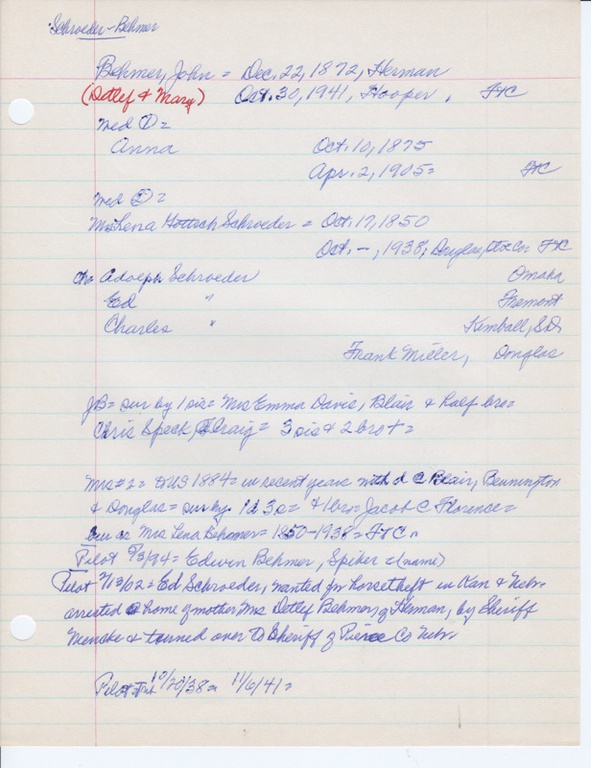 Schroeder-Behmer
Behmer, John = Dec. 22, 1872, Herman
(Detlef & Mary) Oct. 30, 1941, Hooper, FtC
Med ① =
Anna Oct. 10, 1875
Apr. 2, 1905= FtC
Med ② =
Mrs Lena Schroeder = Oct. 17, 1850
Oct. -, 1938; Douglas, Otoe Co= FtC
ch= Adolph Schroeder Omaha
Ed " Fremont
Charles " Kimball, SD,
Frank Miller, Douglas
JB= sur by 1 sis= Mrs Emma Davis, Blair & half bro=
Chris Speck, Craig= 3 sis & 2 bro +=
Mrs #2= US 1884= in recent years with d @ Blair, Bennington
& Douglas= sur by 1d 3s= & 1 bro= Jacob @ Florence=
bur as Mrs Lena Behemer= 1850-1938= FtC=
Pilot 5/3/94= Edwin Behmer, Spiker= (name)
Pilot 2/13/02= Ed Schroeder, wanted for horsetheft in Kan & Nebr.
arrested @ home of mother Mrs Detlef Behmer, of Herman, by Sheriff
Mencke & turned over to Sheriff of Pierce Co Nebr.
Pilot 10/20/38= 11/6/41=